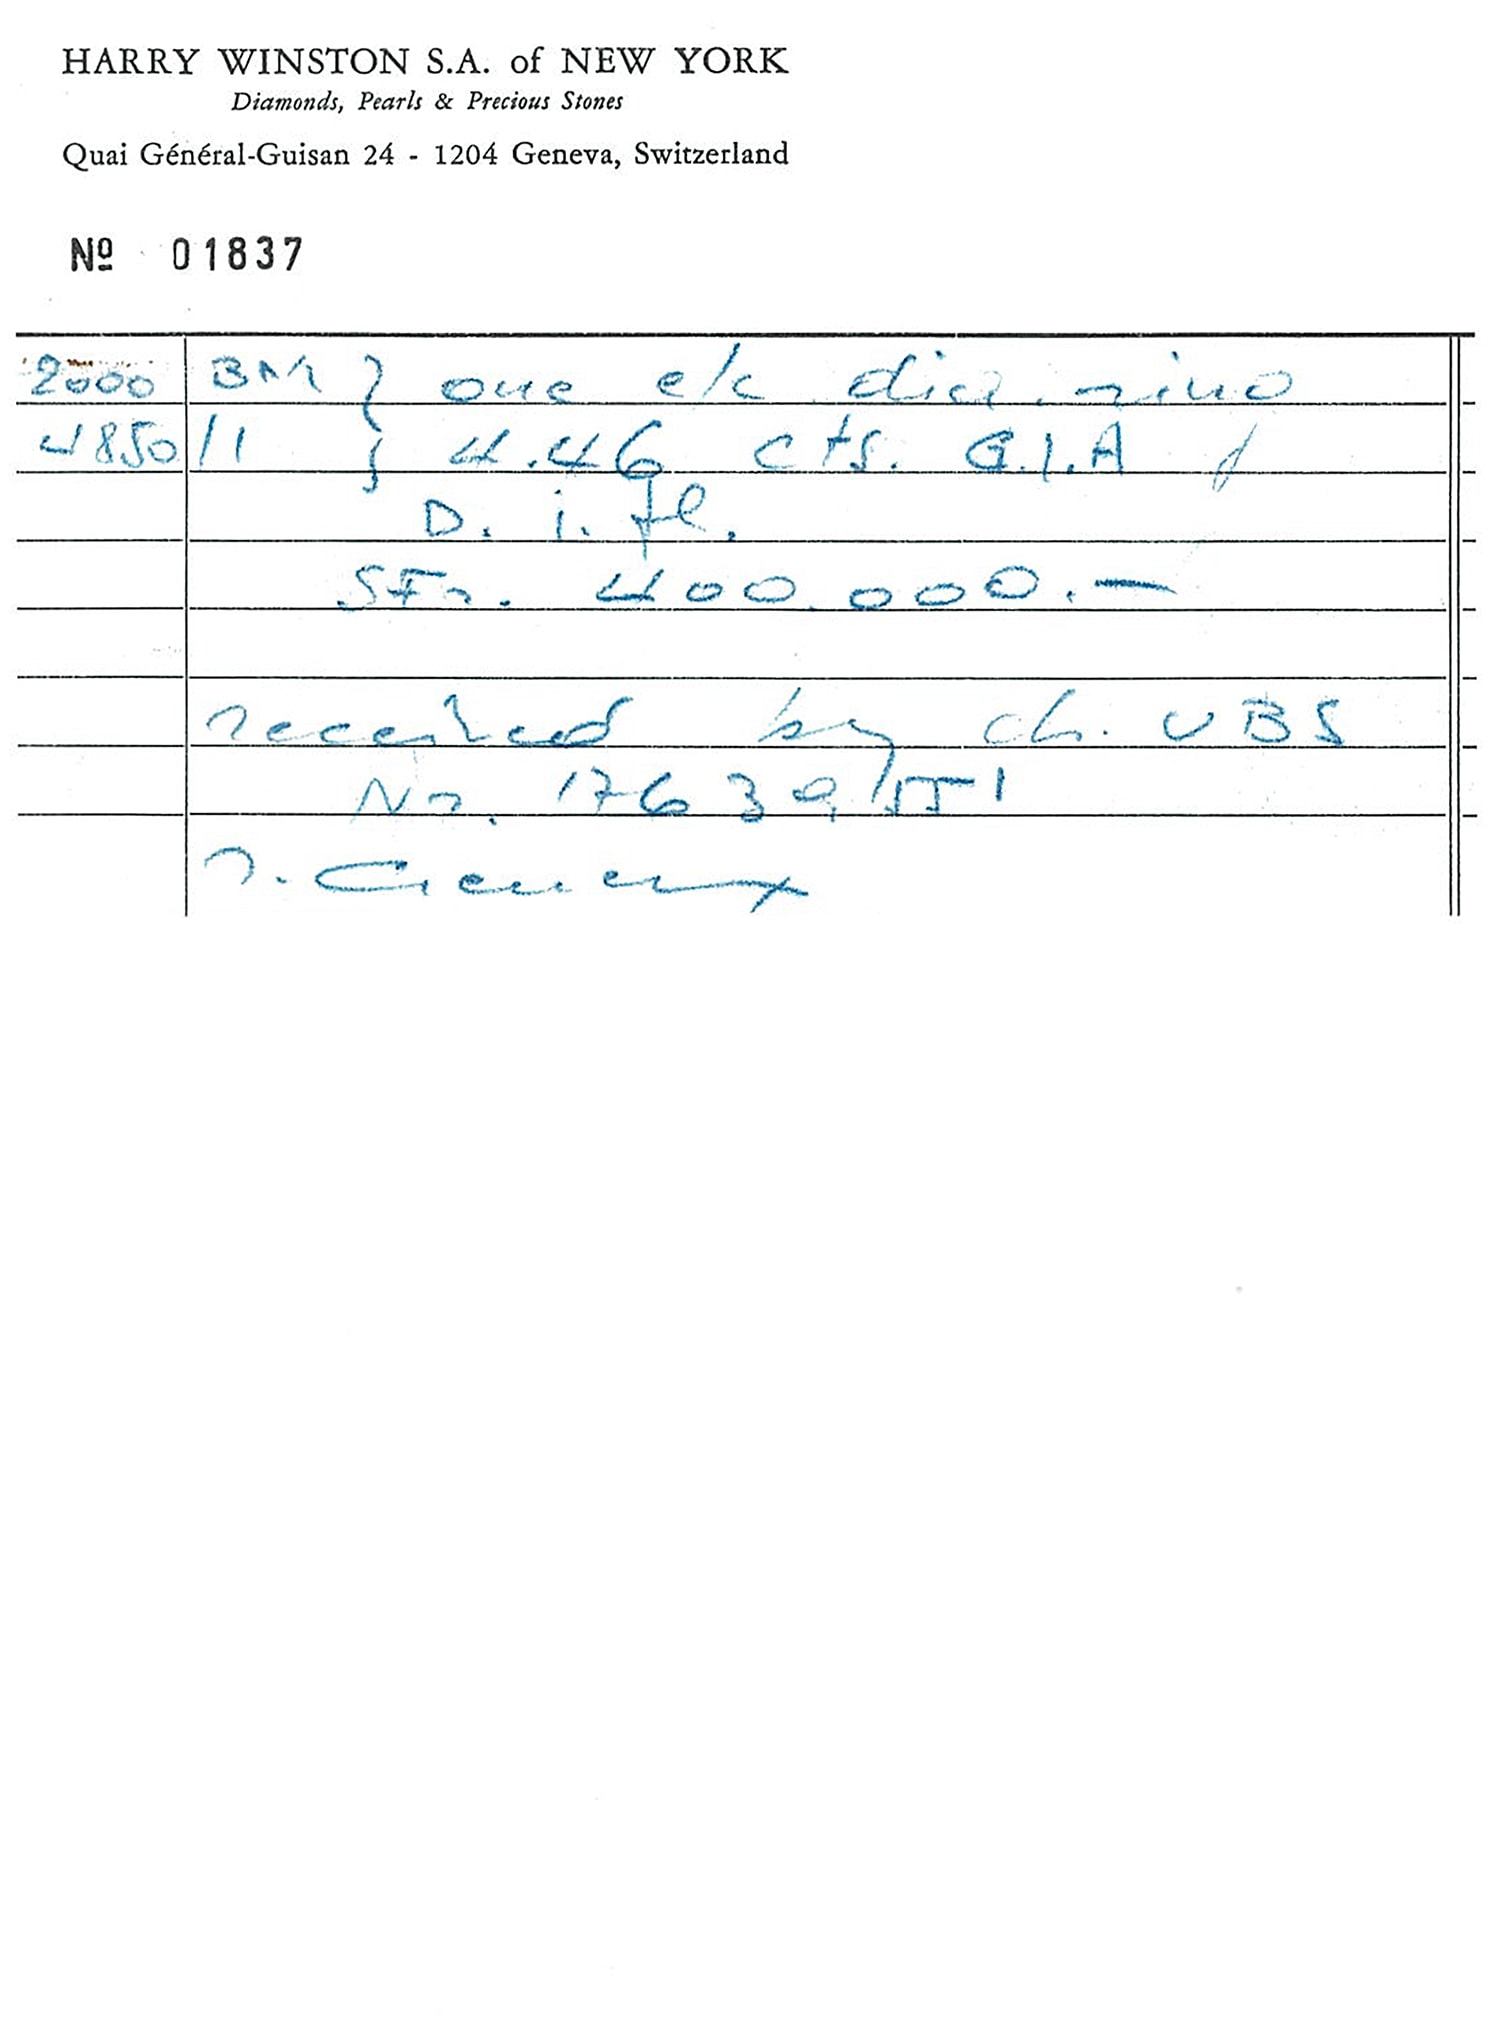 HARRY WINSTON S.A. of NEW YORK
Diamonds, Pearls & Precious Stones
Quai Général-Guisan 24 - 1204 Geneva, Switzerland
Nº 01837
2000 BM } one e/c dia. ring
4850/1 } 4.46 cts. G.I.A
D. i. fl.
SFr. 400.000.—
received by ch. UBS
Nr.